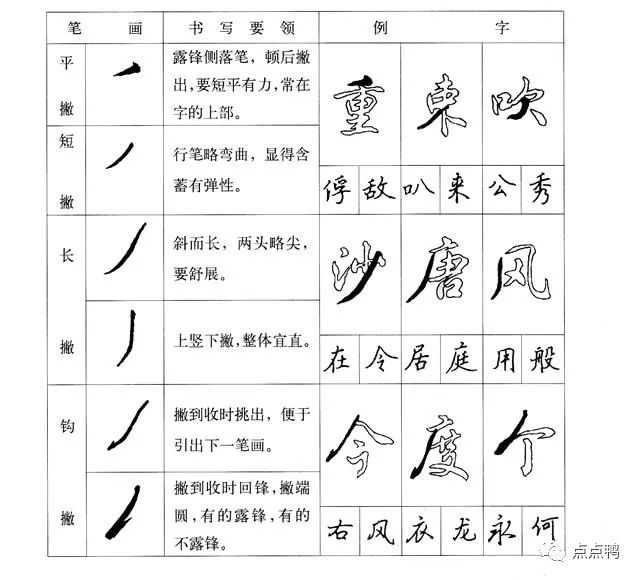 笔 画 书写要领 例 字
平撇
露锋侧落笔，顿后撇
出，要短平有力，常在
字的上部。
重 束 吹
短撇
行笔略弯曲，显得含
蓄有弹性。
俘 敌 叭 来 公 秀
长撇
斜而长，两头略尖，
要舒展。
沙 唐 风
上竖下撇，整体宜直。
在 令 居 庭 用 般
钩撇
撇到收时挑出，便于
引出下一笔画。
今 度 个
撇到收时回锋，撇端
圆，有的露锋，有的
不露锋。
右 风 衣 龙 永 何
点点鸭